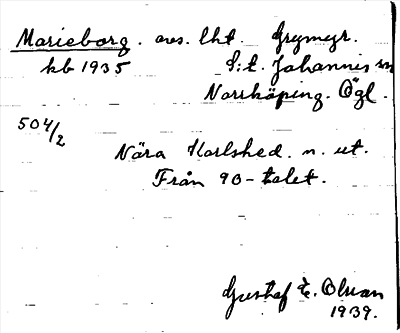 Marieborg. avs. lht. Grymyr.
kb 1935 S:t. Johannis sn
Norrköping. Ögl.
504/2
Nära Karlshed. n. ut.
Från 90-talet.
Gustaf E. Olsson
1939.